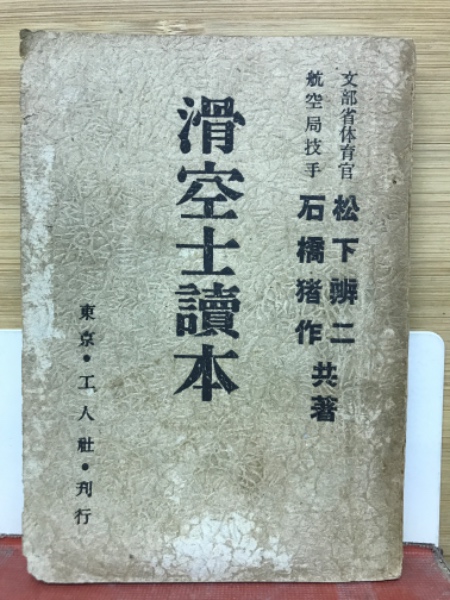 文部省体育官 松下辨二
航空局技手 石橋猪作 共著
滑空士讀本
東京・工人社・刊行